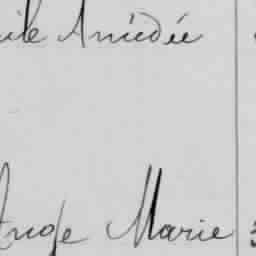 ile Amédée
Ange Marie